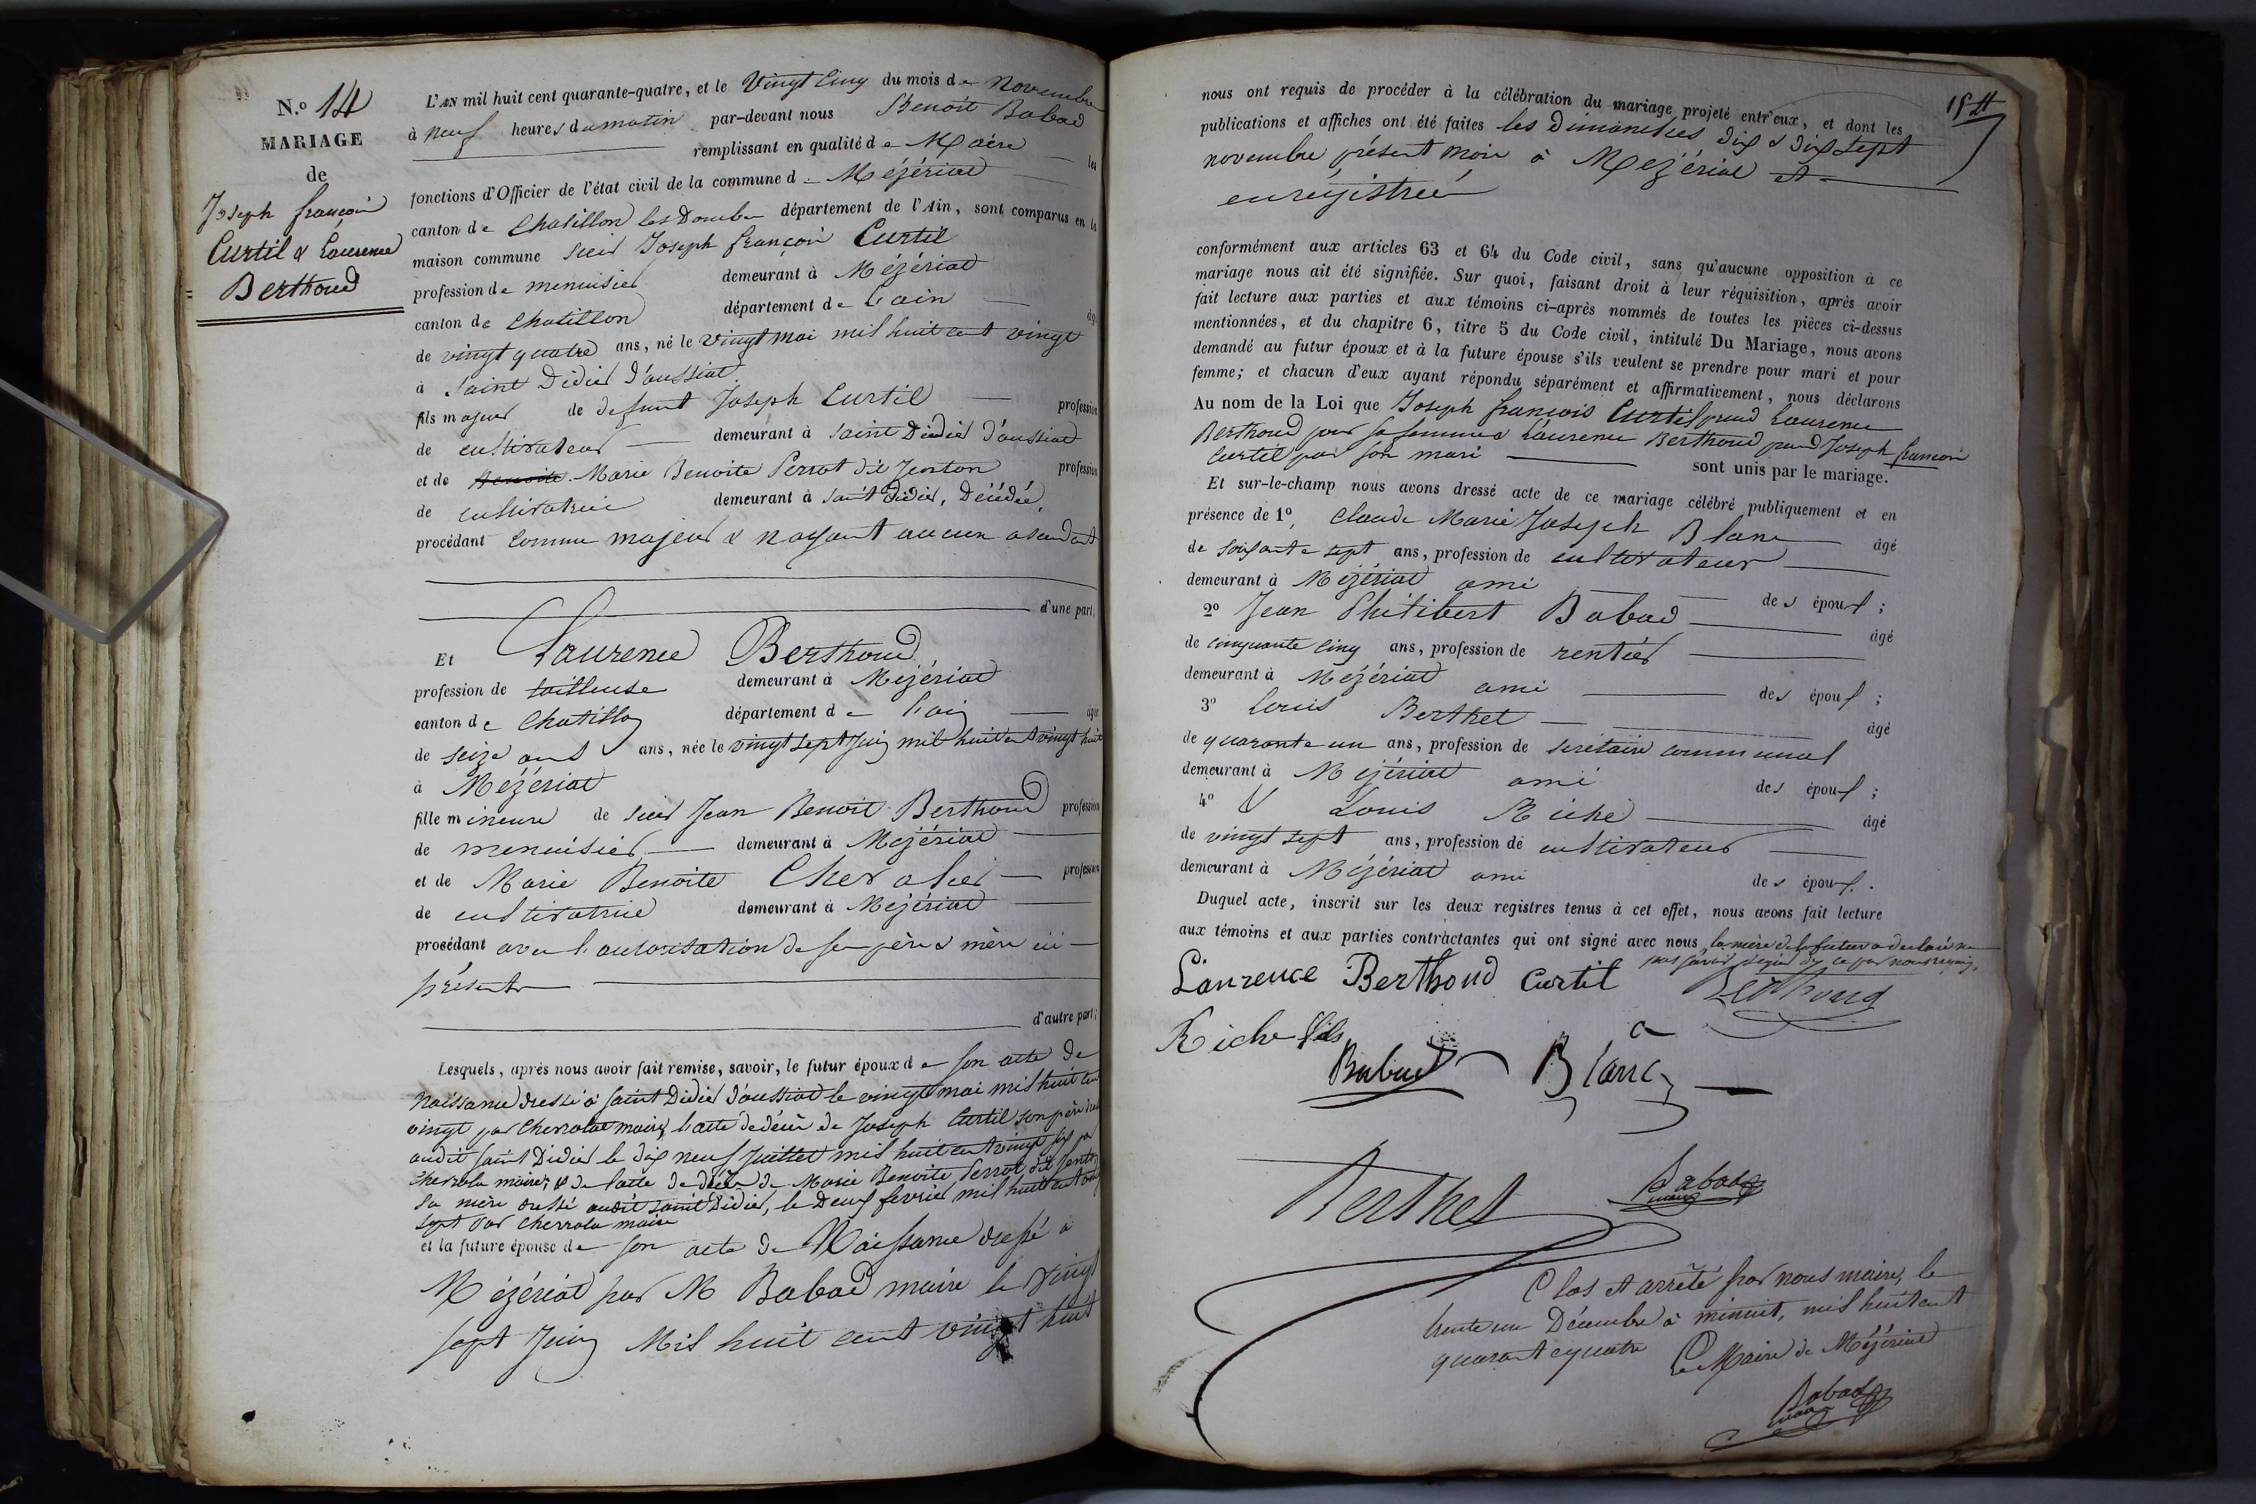 N.o 14
MARIAGE
de
Joseph françois
Curtil & Laurence
Berthoud
L'AN mil huit cent quarante-quatre, et le Vingt Cinq du mois de Novembre
à neuf heures du matin par-devant nous Benoit Babad
remplissant en qualité de Maire les
fonctions d'Officier de l'état civil de la commune de Mézériat
canton de Chatillon les Dombes département de l'Ain, sont comparus en la
maison commune sieur Joseph françois Curtil
profession de menuisier demeurant à Mézériat
canton de Chatillon département de l'ain âgé
de vingt quatre ans, né le vingt mai mil huit cent vingt
à Saint Didier d'aussiat
fils majeur de defunt Joseph Curtil profession
de cultivateur demeurant à Saint Didier d'aussiat
et de Benoite Marie Benoite Perrot dit Jenton profession
de cultivatrice demeurant à saint Didier, Décédée,
procédant comme majeur & n'ayant aucun asendant
d'une part;
Et Laurence Berthoud
profession de tailleuse demeurant à Mézériat
canton de Chatillon département de l'ain âgée
de seize ans ans, née le vingt sept Juin mil huit cent vingt huit
à Mézériat
fille mineure de sieur Jean Benoit Berthoud profession
de menuisier demeurant à Mézériat
et de Marie Benoite Chevalier profession
de cultivatrice demeurant à Mézériat
procédant avec l'autorisation de ses père & mère ici
présents
d'autre part;
Lesquels, après nous avoir fait remise, savoir, le futur époux de son acte de
Naissance dressé à Saint Didier d'aussiat le vingt mai mil huit cent
vingt par Cherrolat maire, l'acte de décès de Joseph Curtil son père
audit Saint Didier le dix neuf Juillet mil huit cent vingt six par
Cherrola maire, & de l'acte de décès de Marie Benoite Perrot dit Jenton
sa mère dressé audit Saint Didier, le Deux fevrier mil huit cent
sept par Cherrola maire
et la future épouse de son acte de Naissance dressé à
Mézériat par M Babad maire le vingt
sept Juin Mil huit cent vingt huit
nous ont requis de procéder à la célébration du mariage projeté entr'eux, et dont les
publications et affiches ont été faites les Dimanches dix & dix sept
novembre présent mois à Mézériat et
enrégistrée
conformément aux articles 63 et 64 du Code civil, sans qu'aucune opposition à ce
mariage nous ait été signifiée. Sur quoi, faisant droit à leur réquisition, après avoir
fait lecture aux parties et aux témoins ci-après nommés de toutes les pièces ci-dessus
mentionnées, et du chapitre 6, titre 5 du Code civil, intitulé Du Mariage, nous avons
demandé au futur époux et à la future épouse s'ils veulent se prendre pour mari et pour
femme; et chacun d'eux ayant répondu séparément et affirmativement, nous déclarons
Au nom de la Loi que Joseph françois Curtil prend Laurence
Berthoud pour sa femme & Laurence Berthoud prend Joseph françois
Curtil pour son mari sont unis par le mariage.
Et sur-le-champ nous avons dressé acte de ce mariage célébré publiquement et en
présence de 1o, Claude Marie Joseph Blanc âgé
de soixante sept ans, profession de cultivateur
demeurant à Mézériat ami des époux;
2o Jean Philibert Babad âgé
de cinquante cinq ans, profession de rentier
demeurant à Mézériat ami des époux;
3o Louis Berthet âgé
de quarante un ans, profession de secrétaire communal
demeurant à Mézériat ami des époux;
4o & Louis Riche âgé
de vingt sept ans, profession de cultivateur
demeurant à Mézériat ami des époux.
Duquel acte, inscrit sur les deux registres tenus à cet effet, nous avons fait lecture
aux témoins et aux parties contractantes qui ont signé avec nous, la mère de la future a déclaré ne
pas savoir signer de ce par nous requis.
Laurence Berthoud Curtil Berthoud
Riche fils
Babad Blanc
Berthet Babad
maire
Clos et arrêté par nous maire, le
trente un Décembre à minuit, mil huit cent
quarante quatre Le Maire de Mézériat
Babad
maire